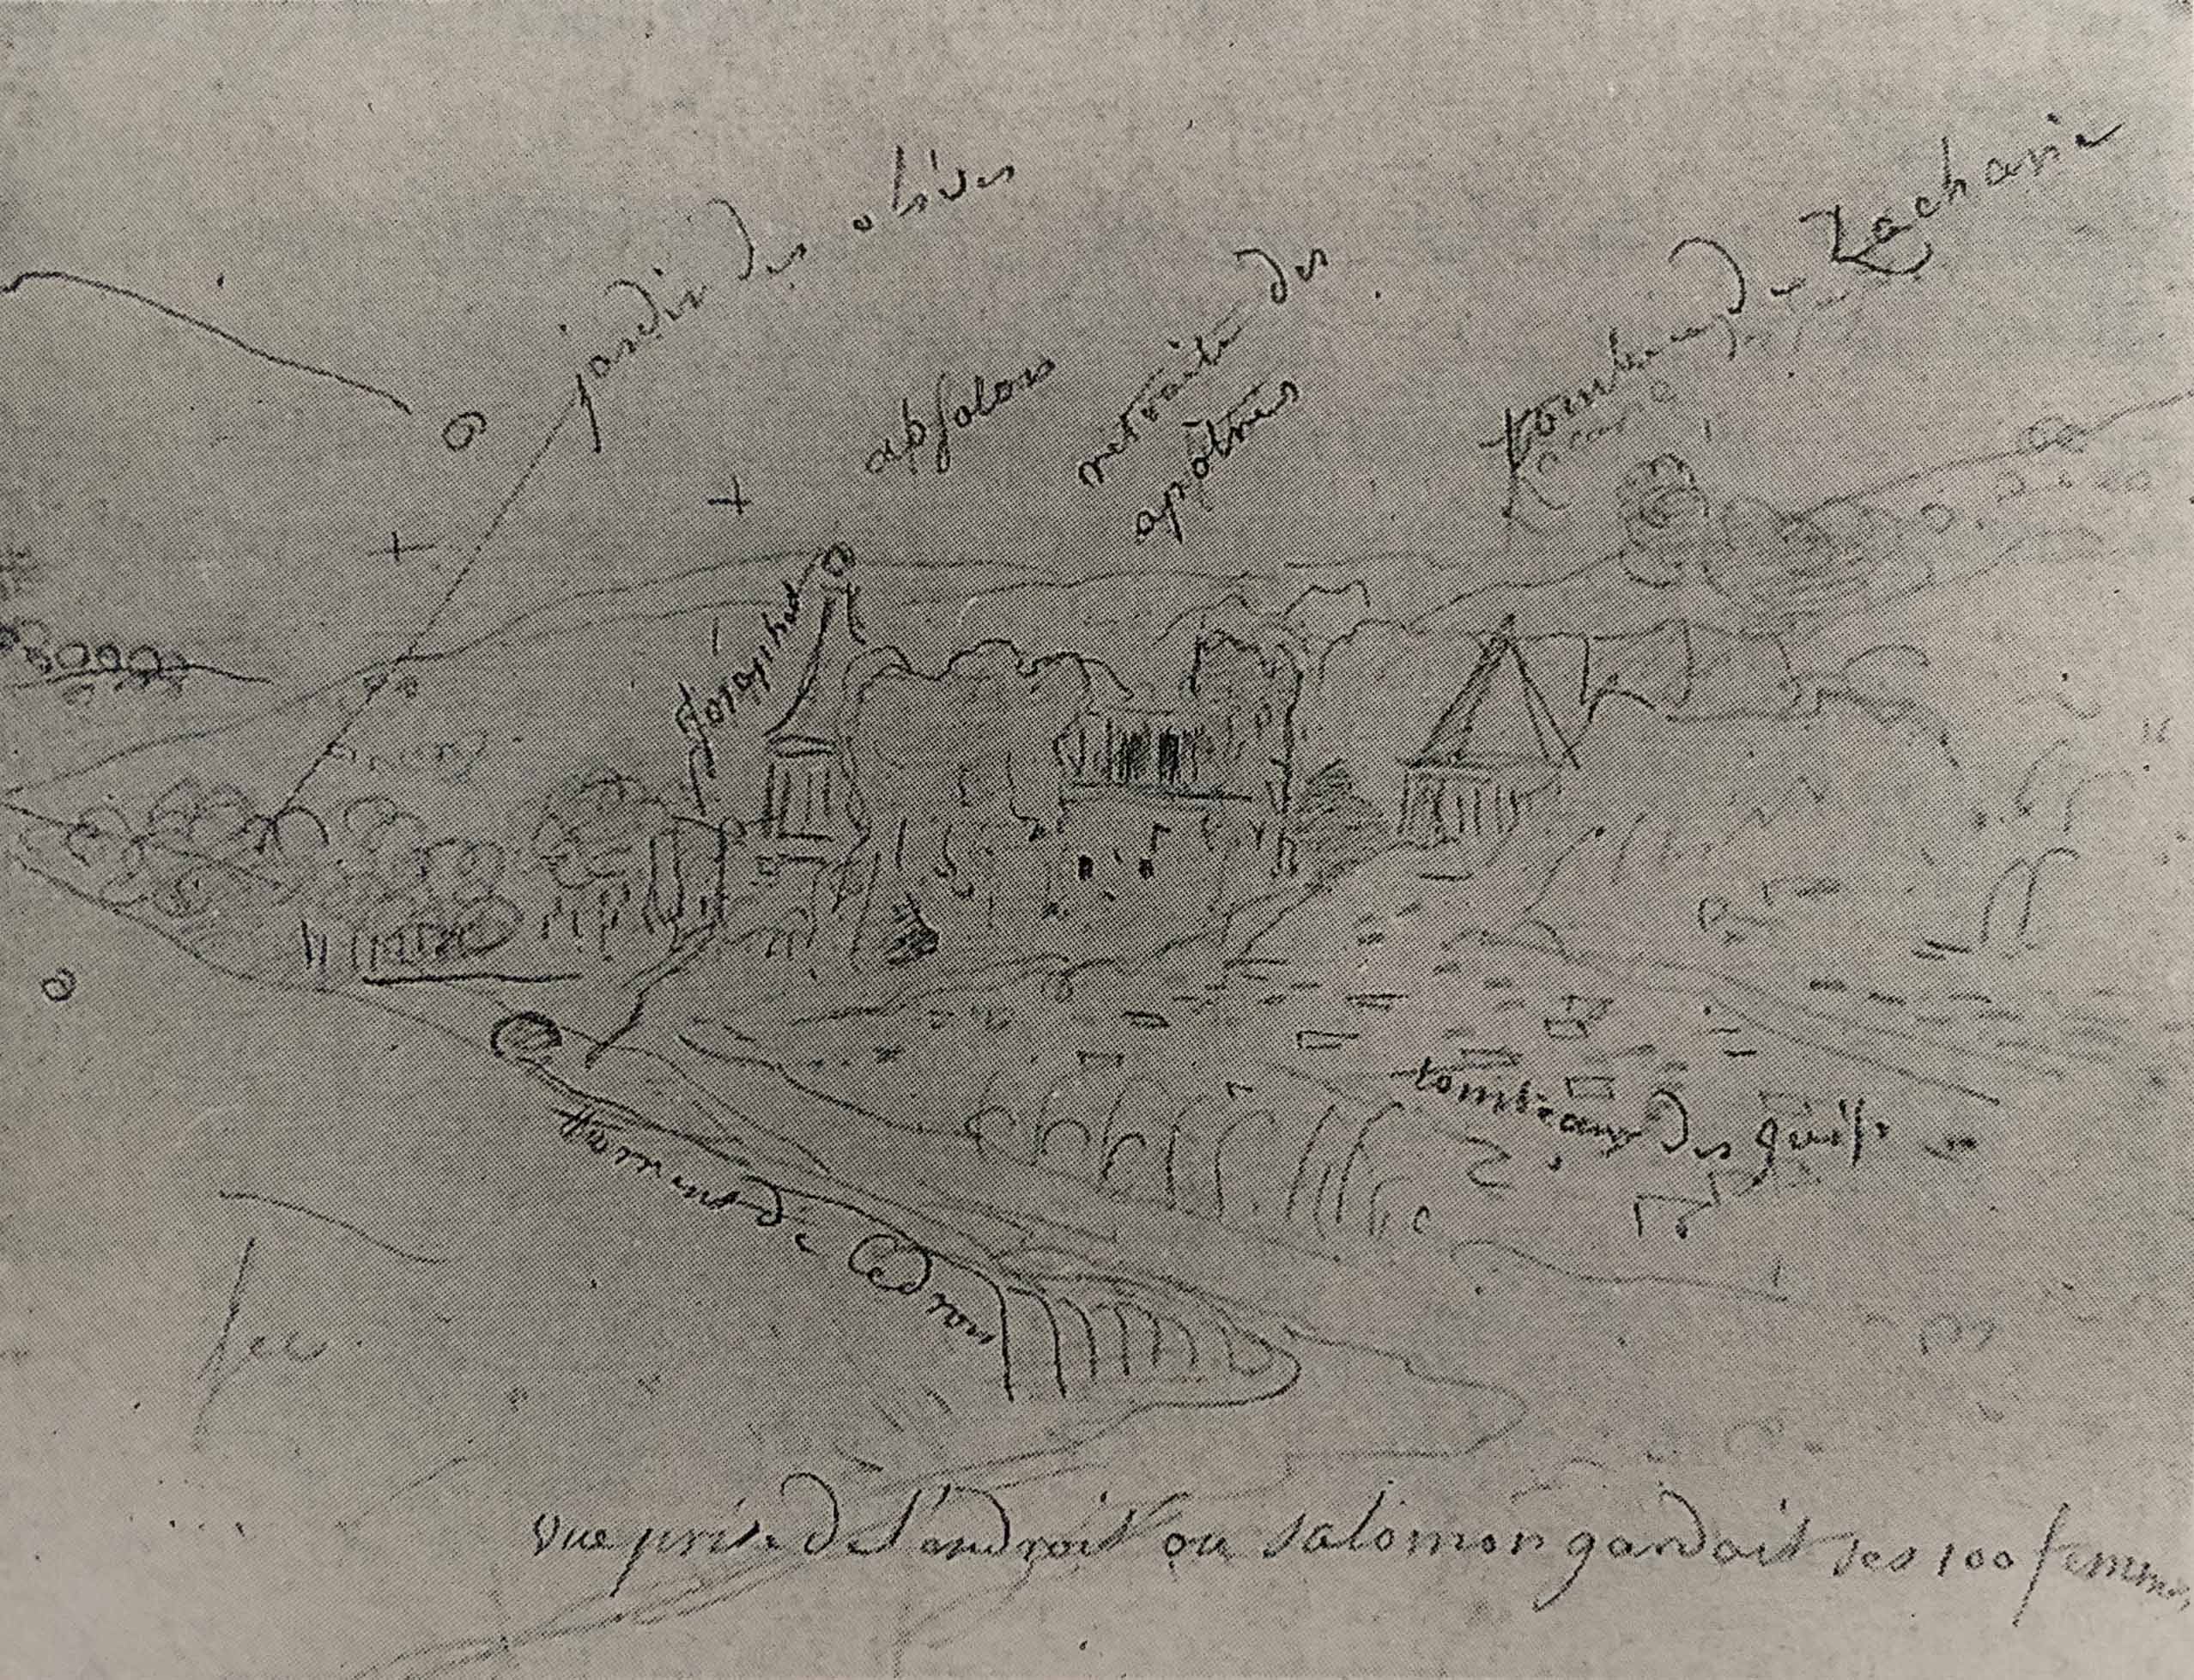 jardin des olives
apsolons
retraite des
apôtres
tombeau de Zacharie
josaphat
tombeaux des juifs
torrent de Cedron
vue prise de l'androit ou salomon gardait ses 100 femmes